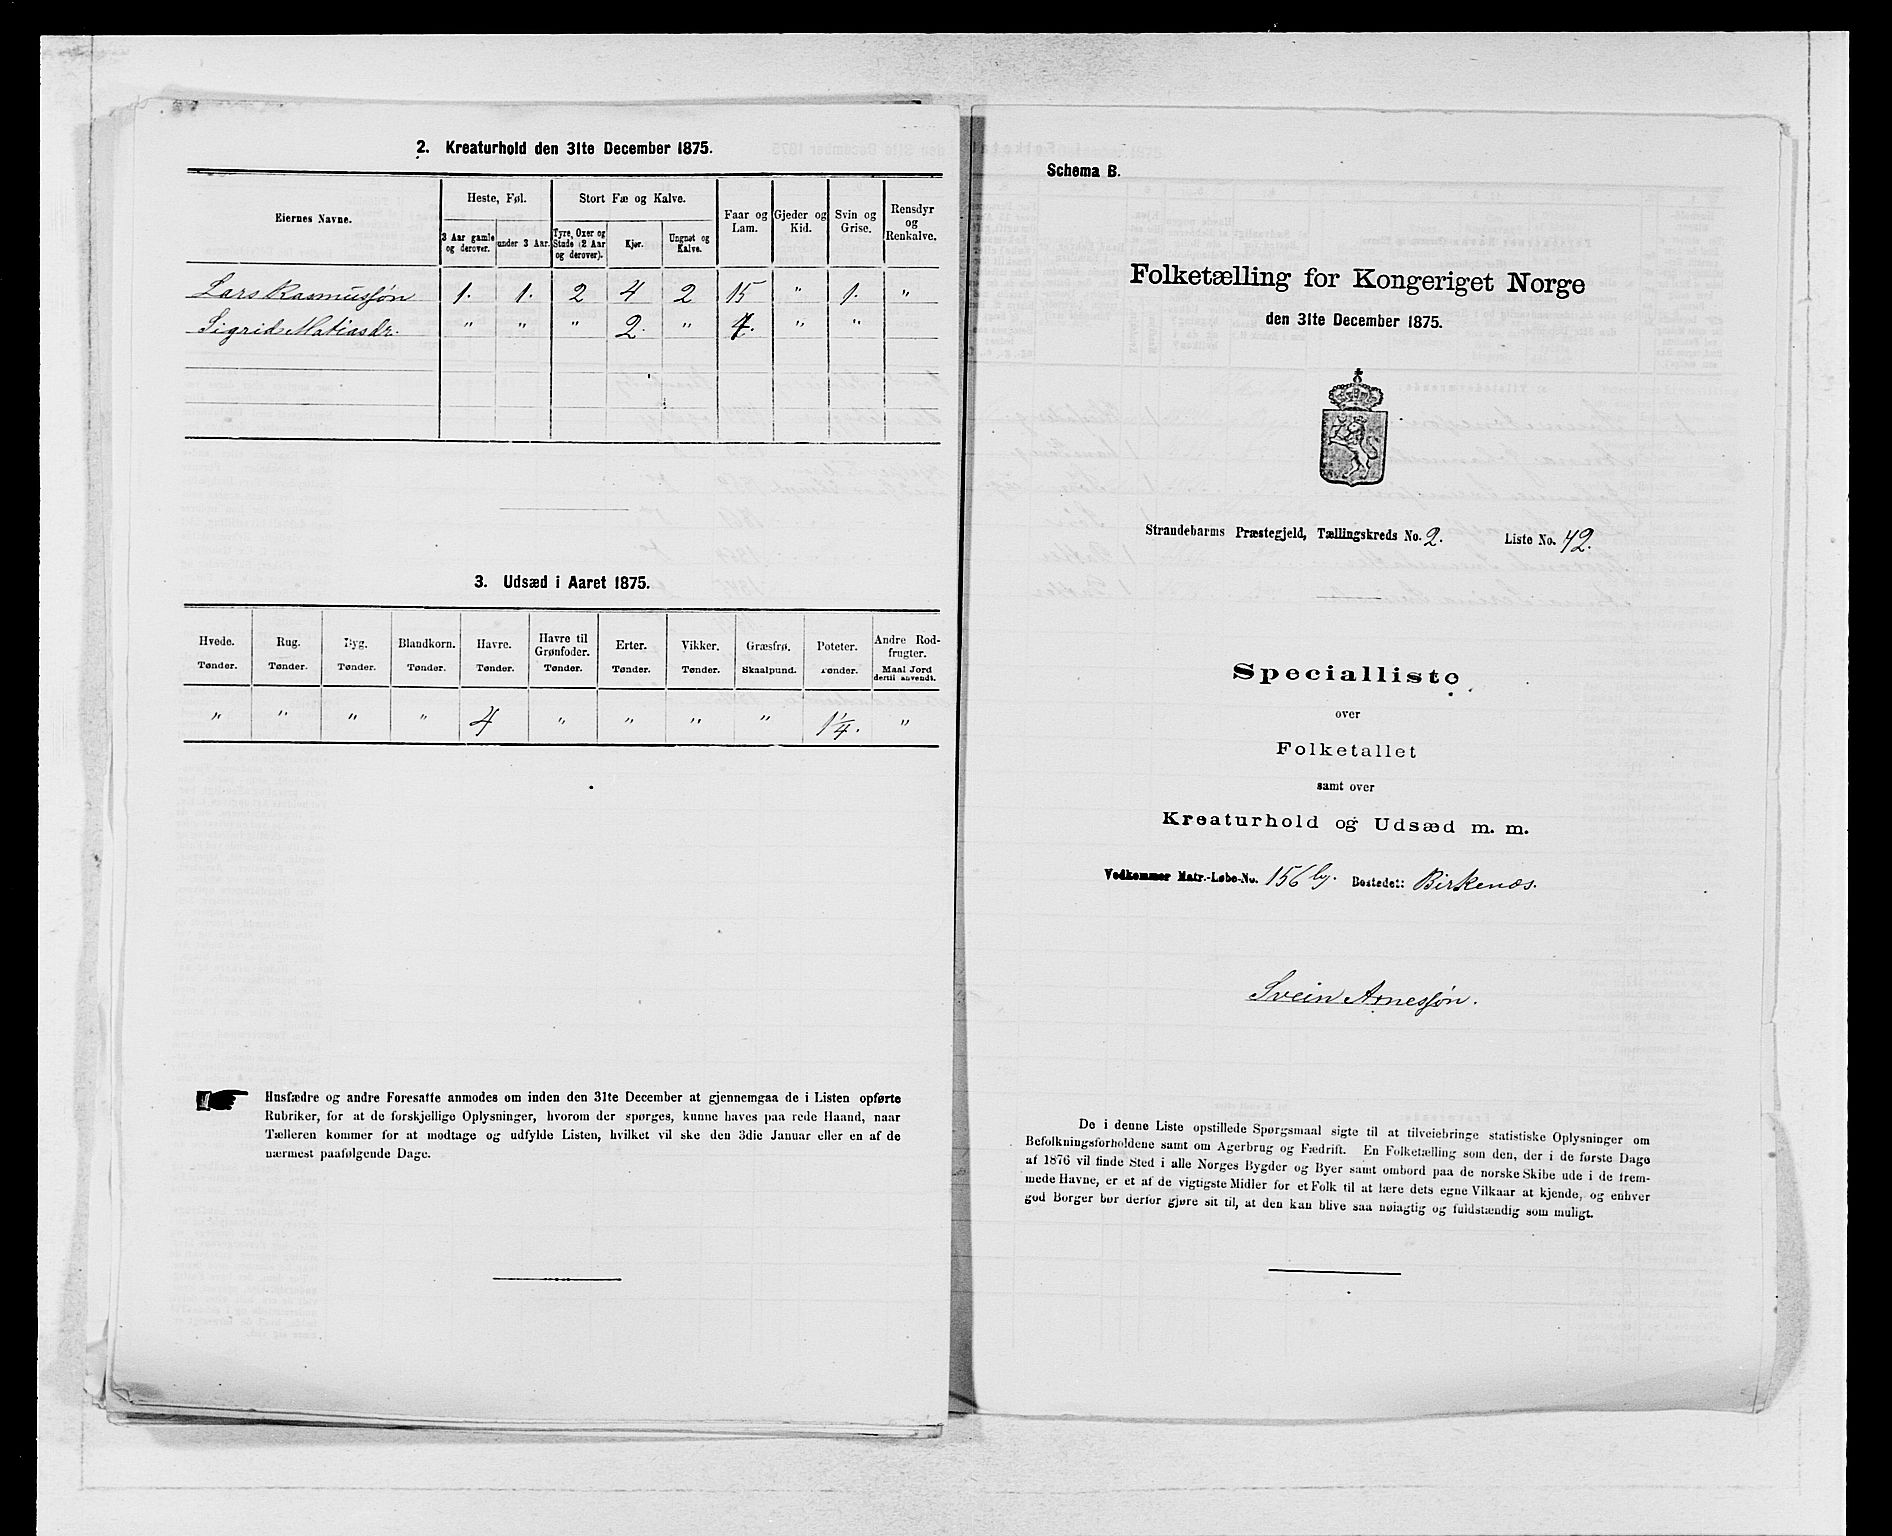 2. Kreaturhold den 31te December 1875.
Eiernes Navne.
Heste, Føl.
Stort Fæ og Kalve.
Faar og Lam.
Gjeder og Kid.
Svin og Grise.
Rensdyr og Renkalve.
3 Aar gamle og derover.
under 3 Aar.
Tyre, Oxer og Stude (2 Aar og derover).
Kjør.
Ungnøt og Kalve.
Lars Rasmussøn 1. 1. 2 4 2 15 " 1. "
Sigrid Matiasdr. " " " 2. " 7. " "
3. Udsæd i Aaret 1875.
Hvede. Rug. Byg. Blandkorn. Havre. Havre til Grønfoder. Erter. Vikker. Græsfrø. Poteter. Andre Rodfrugter.
Tønder. Tønder. Tønder. Tønder. Tønder. Tønder. Tønder. Tønder. Skaalpund. Tønder. Maal Jord dertil anvendt.
" " " " 4 " " " " 1 1/4. "
Husfædre og andre Foresatte anmodes om inden den 31te December at gjennemgaa de i Listen opførte
Rubriker, for at de forskjellige Oplysninger, hvorom der spørges, kunne haves paa rede Haand, naar
Tælleren kommer for at modtage og udfylde Listen, hvilket vil ske den 3die Januar eller en af de
nærmest paafølgende Dage.
Schema B.
Folketælling for Kongeriget Norge
den 31te December 1875.
Strandebarms Præstegjeld, Tællingskreds No. 2. Liste No. 42.
Specialliste
over
Folketallet
samt over
Kreaturhold og Udsæd m. m.
Vedkommer Matr.-Løbe-No. 156 by. Bostedet: Birkenæs.
Svein Arnessøn.
De i denne Liste opstillede Spørgsmaal sigte til at tilveiebringe statistiske Oplysninger om
Befolkningsforholdene samt om Agerbrug og Fædrift. En Folketælling som den, der i de første Dage
af 1876 vil finde Sted i alle Norges Bygder og Byer samt ombord paa de norske Skibe ude i de frem-
mede Havne, er et af de vigtigste Midler for et Folk til at lære dets egne Vilkaar at kjende, og enhver
god Borger bør derfor gjøre sit til, at den kan blive saa nøiagtig og fuldstændig som muligt.